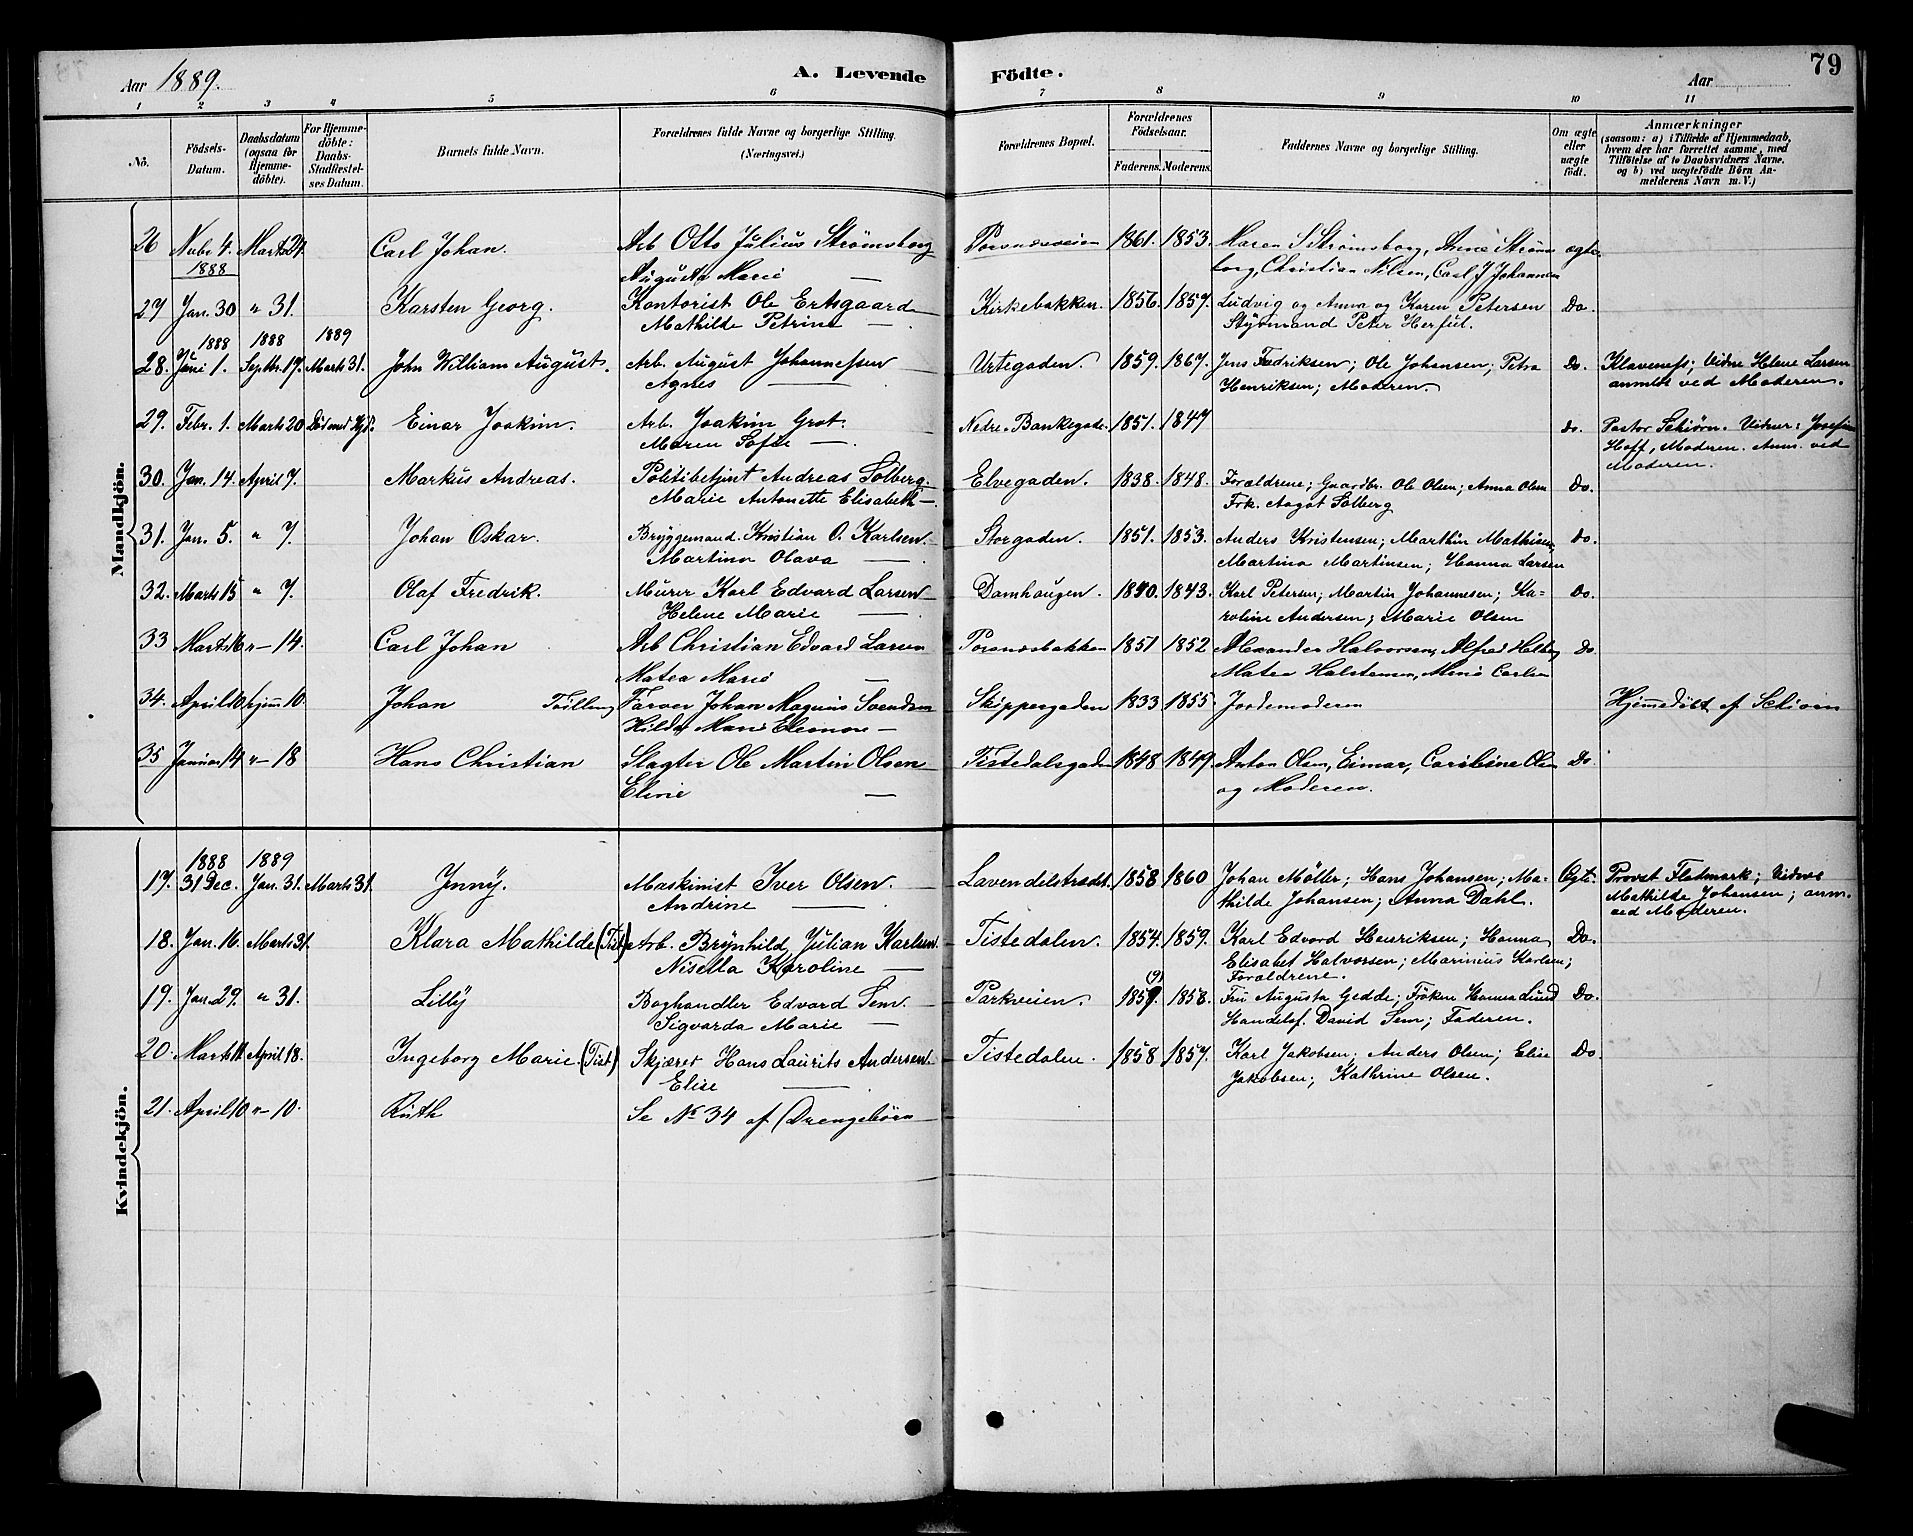 79
Aar 1889.
A. Levende Födte.
Aar
1 2 3 4 5 6 7 8 9 10 11
Nö.
Födsels-Datum.
Daabsdatum (ogsaa for Hjemme-döbte).
For Hjemme-döbte: Daabs-Stadfæstel-ses Datum.
Barnets fulde Navn.
Forældrenes fulde Navne og borgerlige Stilling. (Næringsvei.)
Forældrenes Bopæl.
Forældrenes Födselsaar.
Faderens. Moderens.
Faddernes Navne og borgerlige Stilling.
Om ægte eller uægte födt.
Anmærkninger
(saasom: a) i Tilfælde af Hjemmedaab,
hvem der har forrettet samme, med
Tilföielse af to Daabsvidners Navne.
og b) ved uægtefödte Börn An-
melderens Navn m. V.)
Mandkjön.
26 Nvbr 4. Marts 24. Carl Johan. Arb Otto Julius Strømsborg Porsnæsveien 1861. 1853. Maren S Strømsborg, Anne Strøms ægte.
1888 Augusta Marie — borg, Christian Nilsen, Carl J Johannesen
27 Jan. 30 " 31. Karsten Georg. Kontorist Ole Ertsgaard Kirkebakken. 1856. 1857. Ludvig og Anna og Karen Petersen Do.
Mathilde Petrine — Styrmand Peter Herful.
1888 1888 1889
28. Juni 1. Septbr. 17. Marts 31. John William August. Arb. August Johannessen Urtegaden. 1859. 1867. Jens Fredriksen; Ole Johansen; Petra Do. Klaveness; Vidne Helene Larsen
Agnes — Henriksen; Moderen. anmeldt ved Moderen.
29. Febr. 1. Marts 20 Död med Hjd. Einar Joakim. Arb. Joakim Grot. Nedre Bankegade. 1851. 1847 do. Pastor Schiörn. Vidner: Josefine
Maren Sofie — Hoff, Moderen. Anm. ved
Moderen.
30. Jan. 14. April 7. Markus Andreas. Politibetjent Andreas Solberg. Elvegaden. 1838. 1848. Forældrene; Gaardbr. Ole Olsen; Anna Olsen Do.
Marie Antonette Elisabeth — Frk. Aagot Solberg
31. Jan. 5. " 7. Johan Oskar. Bryggemand. Kristian O. Karlsen. Storgaden. 1851. 1853. Anders Kristensen; Marthin Mathisen Do.
Martina Olava — Martina Martinsen; Hanna Larsen
32. Marts 15 " 7. Olaf Fredrik. Murer Karl Edvard Larsen Damhaugen. 1840. 1843. Karl Petersen; Martin Johannesen; Ka= Do.
Helene Marie — roline Andersen; Marie Olsen
33 Marts 16 " — 14. Carl Johan Arb Christian Edvard Larsen Porsnæsbakken 1851 1852 Alexander Halvorsen, Alfred Do
Matea Marie — Matea Halstensen, Mina Carlsen
34. April 10 hjem 10. Johan Tvilling Farver Johan Magnus Svendsen Skippergaden 1833 1855 Jordemoderen Hjemedöbt af Schiörn
Hilda Marie Eleonore —
35 Januar 14 " — 18 Hans Christian Slagter Ole Martin Olsen Tistedalsgaden 1848 1849 Anton Olsen, Einar, Caroline Olsen Do
Eline — og Moderen.
Kvindekjön.
1888 1889
17. 31 Dec. Jan. 31. Marts 31. Jnny. Maskinist Iver Olsen. Lavendelstrædet. 1858 1860 Johan Møller; Hans Johansen; Ma= Ægte. Provst Fladmark; Vidne
Andrine — thilde Johansen; Anna Dahl. Mathilde Johansen; anm.
ved Moderen.
18. Jan. 16. Marts 31. Klara Mathilde (Tist) Arb. Brynhild Julian Karlsen. Tistedalen. 1854. 1859. Karl Edvard Henriksen; Hanna Do.
Nisella Karoline — Elisabet Halvorsen; Marinius Karlsen;
Forældrene.
19. Jan. 29. " 31. Lilly Boghandler Edvard Sem. Parkveien. (9) 1859. 1858. Fru Augusta Gedde; Fröken Hanna Lund Do.
Sigvarda Marie — Handelsf. David Sem; Faderen.
20. Marts 11. April 18. Ingeborg Marie. (Tist) Skjærer Hans Laurits Andersen. Tistedalen. 1858 1857. Karl Jakobsen; Anders Olsen; Elise Do.
Elise — Jakobsen; Kathrine Olsen.
21. April 10 " — 10. Ruth Se No 34 af (Drengebörn